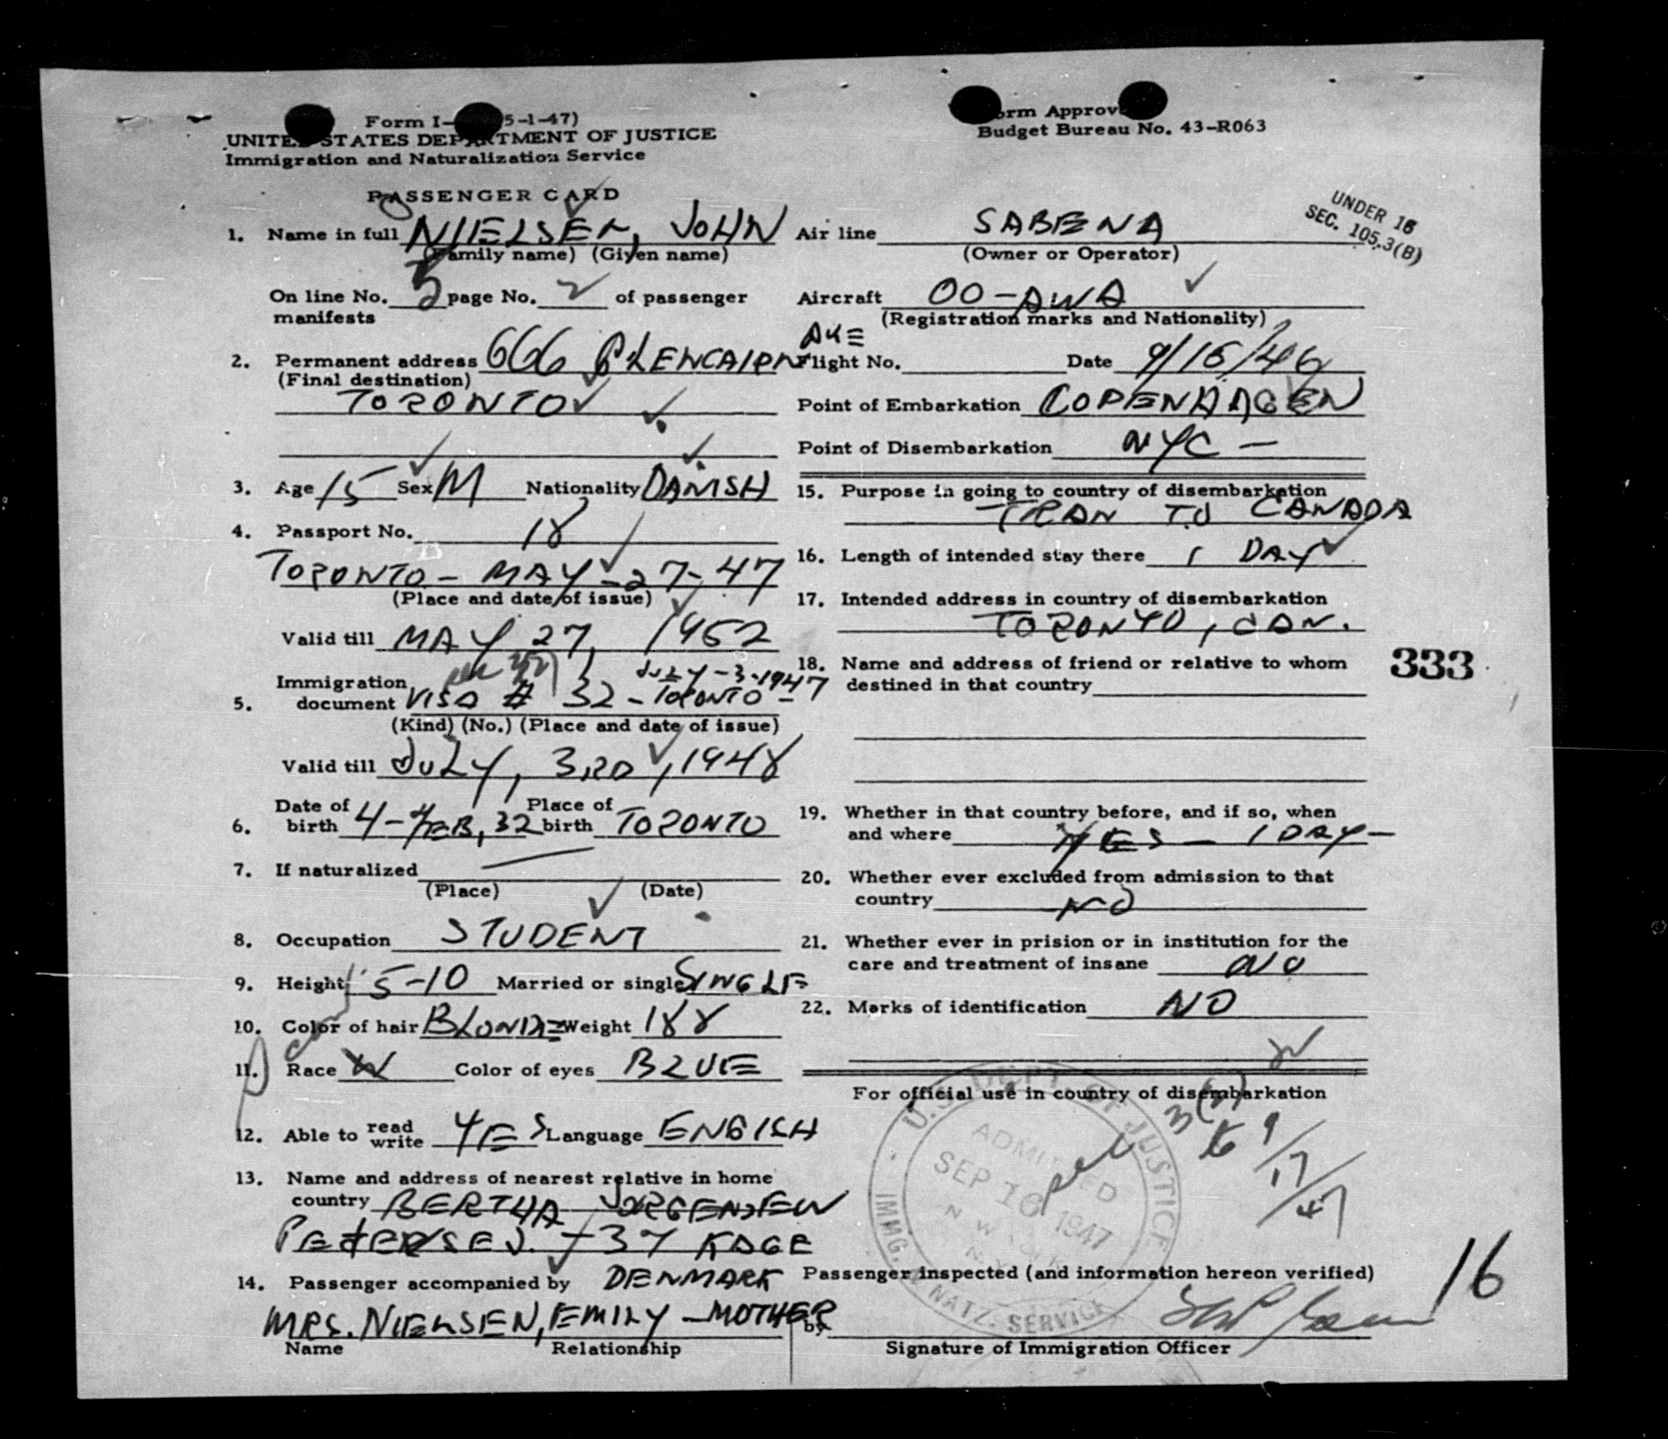 Form I- 5-1-47)
UNITED STATES DEPARTMENT OF JUSTICE
Immigration and Naturalization Service
PASSENGER CARD
Form Approv
Budget Bureau No. 43-R063
UNDER 16
SEC. 105.3(B)
1. Name in full NIELSEN, JOHN
(Family name) (Given name)
On line No. 5 page No. 2 of passenger
manifests
2. Permanent address 666 GLENCAIRN
(Final destination)
TORONTO
3. Age 15 Sex M Nationality DANISH
4. Passport No. 18
TORONTO - MAY - 27 - 47
(Place and date of issue)
Valid till MAY 27, 1952
JULY - 3 - 1947
Immigration
5. document VISA # 32 - TORONTO -
(Kind) (No.) (Place and date of issue)
Valid till JULY, 3RD, 1948
Date of Place of
6. birth 4 - FEB, 32 birth TORONTO
7. If naturalized
(Place) (Date)
8. Occupation STUDENT
9. Height 5-10 Married or single SINGLE
10. Color of hair BLONDE Weight 188
11. Race W Color of eyes BLUE
12. Able to read write YES Language ENGISH
13. Name and address of nearest relative in home
country BERTHA JORGENSEN
- 37 KOGE
DENMARK
14. Passenger accompanied by
MRS. NIELSEN, EMILY - MOTHER
Name Relationship
Air line SABENA
(Owner or Operator)
Aircraft OO-AWA
(Registration marks and Nationality)
Flight No. Date 9/15/46
Point of Embarkation COPENHAGEN
Point of Disembarkation NYC -
15. Purpose in going to country of disembarkation
TRAN TO CANADA
16. Length of intended stay there 1 DAY
17. Intended address in country of disembarkation
TORONTO, CAN.
18. Name and address of friend or relative to whom
destined in that country
333
19. Whether in that country before, and if so, when
and where YES - 1 DAY -
20. Whether ever excluded from admission to that
country NO
21. Whether ever in prision or in institution for the
care and treatment of insane NO
22. Marks of identification NO
For official use in country of disembarkation
U.S. DEPT. OF JUSTICE
ADMITTED
SEP 16 1947
IMMG. & NATZ. SERVICE
3(2)
9/17/47
Passenger inspected (and information hereon verified)
16
by
Signature of Immigration Officer